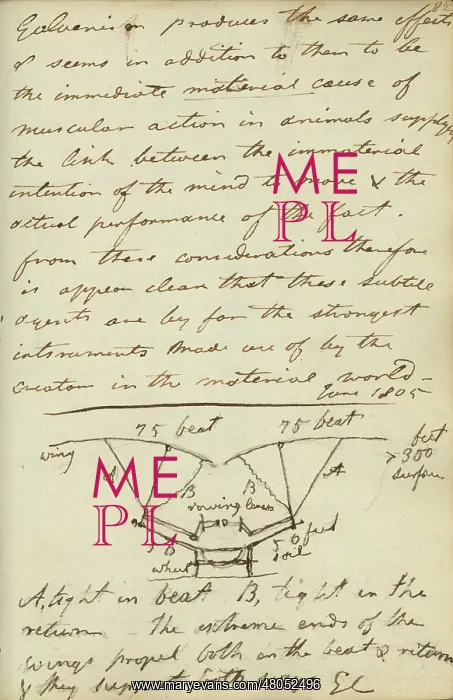 Galvanism produces the same effects
& seems in addition to them to be
the immediate material cause of
muscular action in animals supplying
the link between the immaterial
intention of the mind to move & the
actual performance of the fact.
from these considerations therefore
it appears clear that these subtile
agents are by far the strongest
instruments made use of by the
creator in the material world –
June 1805
75 beat 75 beat
wing
feet
> 300
surface
A A
B B
rowing
50 50 feet
wheel
A, tight in beat B, tight in the
return the extreme ends of the
wings propel both in the beat & return
& they support both
ME
PL
ME
PL
www.maryevans.com/48052496